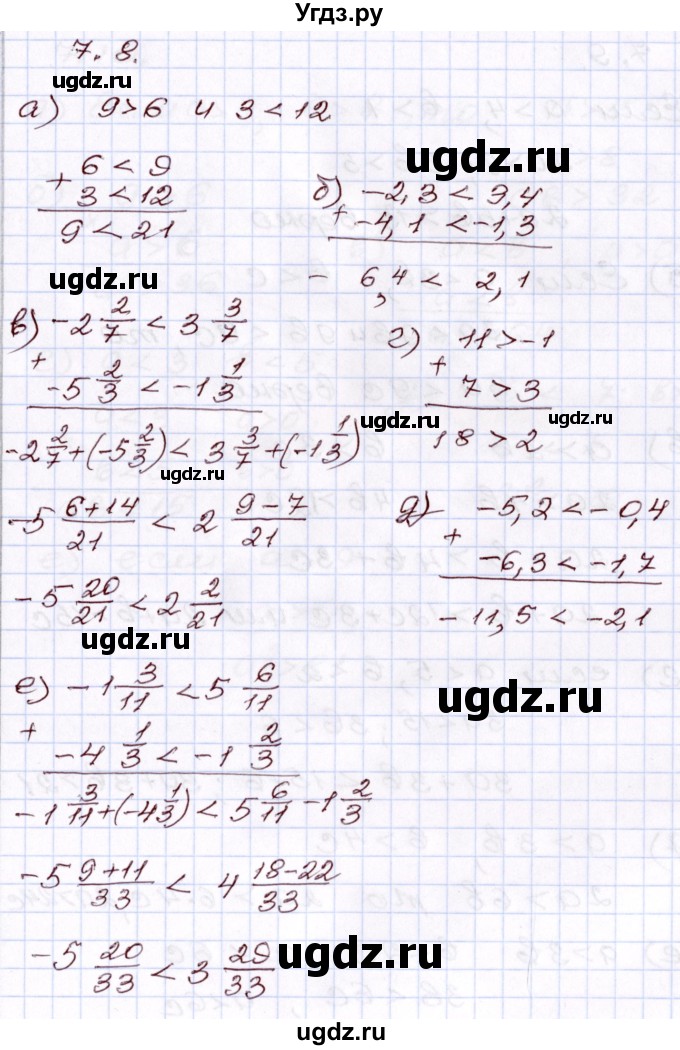 Угдз.ру
7.8.
ugdz.ru
а) 9>6 и 3<12
+ 6<9
3<12
9<21
ugdz.ru
б) -2,3 < 9,4
+ -4,1 < -1,3
- 6,4 < 2,1
ugdz.ru
в) -2 2/7 < 3 3/7
+ -5 2/3 < -1 1/3
-2 2/7 + (-5 2/3) < 3 3/7 + (-1 1/3)
ugdz.ru
-5 6+14/21 < 2 9-7/21
-5 20/21 < 2 2/21
ugdz.ru
г) 11>-1
+ 7>3
ugdz.ru
ugdz.ru
18>2
д) -5,2 < -0,4
+ -6,3 < -1,7
-11,5 < -2,1
ugdz.ru
е) -1 3/11 < 5 6/11
+ -4 1/3 < -1 2/3
-1 3/11 + (-4 1/3) < 5 6/11 - 1 2/3
-5 9+11/33 < 4 18-22/33
-5 20/33 < 3 29/33
ugdz.ru
ugdz.ru